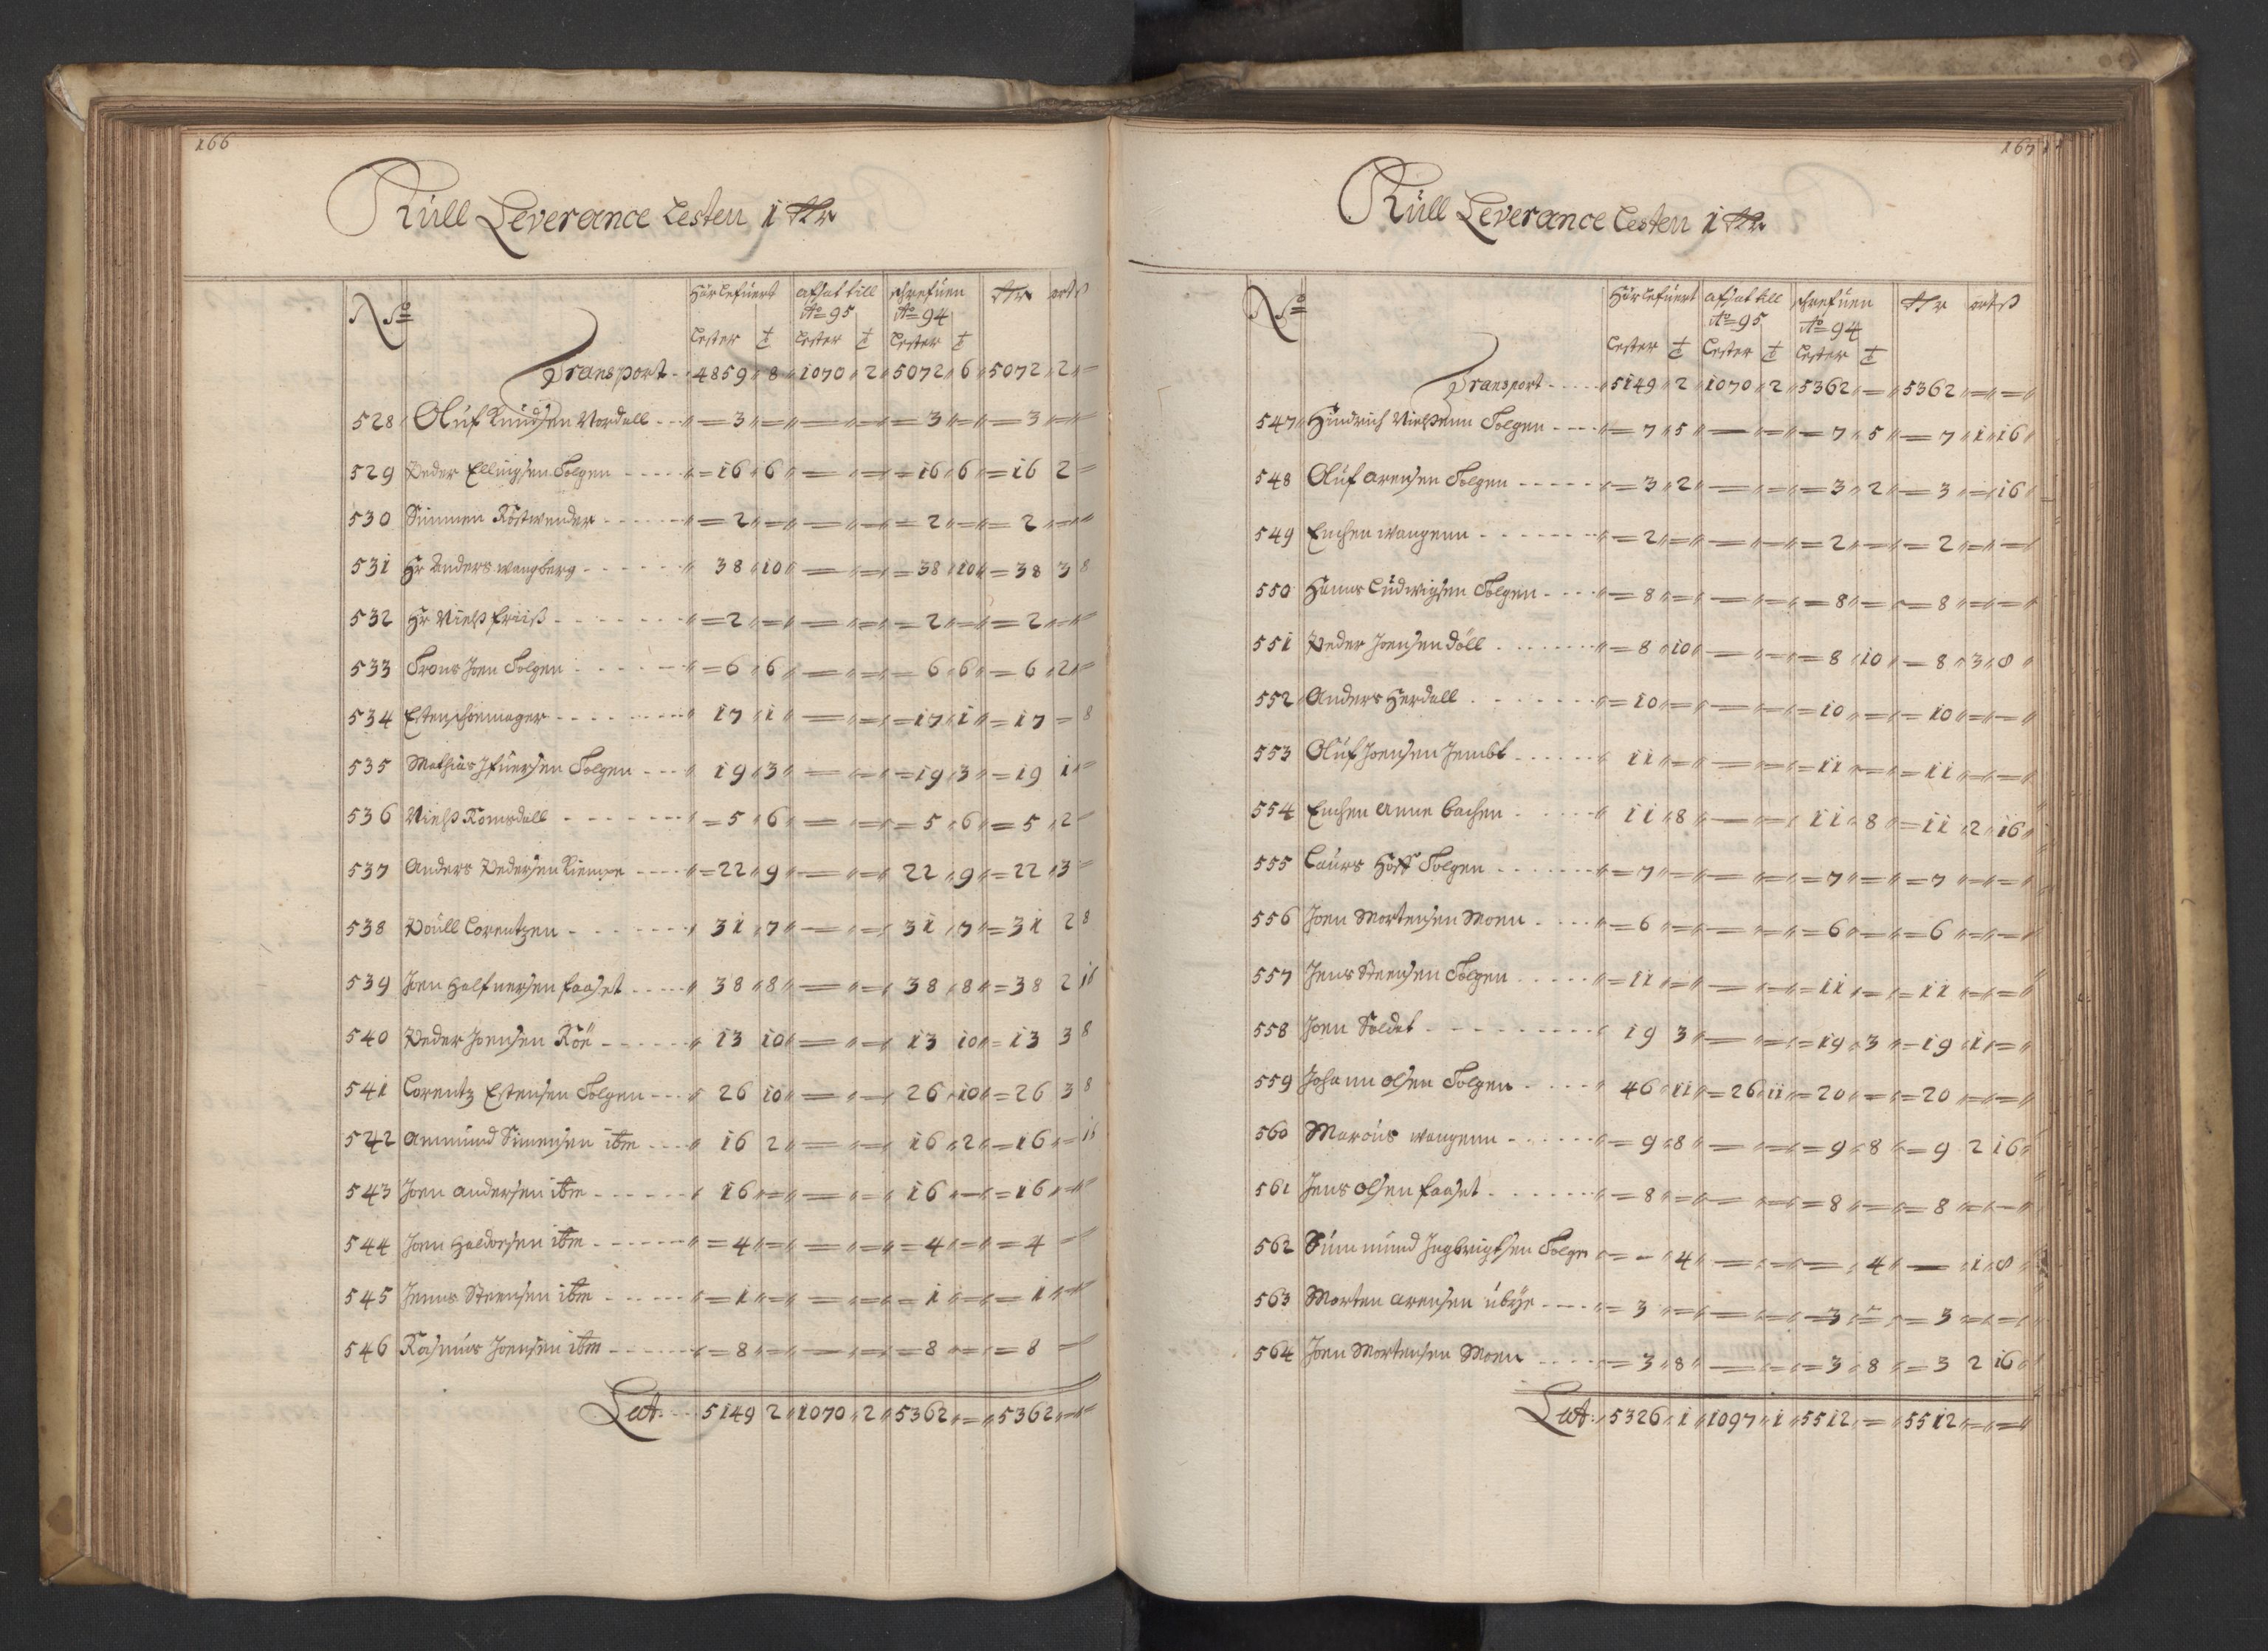 166
Küll Leverance Lesten 1 Rdr
No
Har lefuert afsat till schrefuen Rdr ort ß
Ao 95 Ao 94
Lester t Lester t Lester t
Transport 4859 8 1070 2 5072 6 5072 2 =
528 Oluf Knudsen Nordall 3 = = = 3 = 3 = =
529 Peder Ellingsen Tolgen 16 6 = = 16 6 16 2 =
530 Simmen Röstwender 2 = = = 2 = 2 = =
531 Hr Anders wangberg 38 10 = = 38 10 38 3 8
532 Hr Nielß friiß 2 = = = 2 = 2 = =
533 Trons Joen Tolgen 6 6 = = 6 6 6 2 =
534 Esten schoemager 17 1 = = 17 1 17 = 8
535 Mathias Ifuersen Tolgen 19 3 = = 19 3 19 1 =
536 Nielß Romsdall 5 6 = = 5 6 5 2 =
537 Anders Pedersen Kiempe 22 9 = = 22 9 22 3 =
538 Poull Lorentzen 31 7 = = 31 7 31 2 8
539 Joen Halfuersen faaset 38 8 = = 38 8 38 2 16
540 Peder Joensen Röe 13 10 = = 13 10 13 3 8
541 Lorentz Estensen Tolgen 26 10 = = 26 10 26 3 8
542 Ammund Simensen itm 16 2 = = 16 2 16 = 16
543 Joen andersen itm 16 = = = 16 = 16 = =
544 Joen Haldorsen itm 4 = = = 4 = 4 = =
545 Jenns Steensen itm 1 = = = 1 = 1 = =
546 Rasmus Joensen itm 8 = = = 8 = 8 = =
Lat. 5149 2 1070 2 5362 = 5362 = =
167
Küll Leverance Lesten 1 Rdr
No
Har lefuert afsat till schrefuen Rdr ort ß
Ao 95 Ao 94
Lester t Lester t Lester t
Transport 5149 2 1070 2 5362 = 5362 = =
547 Hindrich Nielßenn Tolgen 7 5 = = 7 5 7 1 16
548 Oluf arensen Tolgen 3 2 = = 3 2 3 = 16
549 Enchen wangenn 2 = = = 2 = 2 = =
550 Hanns Ludwigsen Tolgen 8 = = = 8 = 8 = =
551 Peder Joensen döll 8 10 = = 8 10 8 3 8
552 Anders Herdall 10 = = = 10 = 10 = =
553 Oluf Joensen Jembt 11 = = = 11 = 11 = =
554 Enchen Anne bachen 11 8 = = 11 8 11 2 16
555 Laurs Hoff Tolgen 7 = = = 7 = 7 = =
556 Joen Mortensen Moen 6 = = = 6 = 6 = =
557 Jens Steensen Tolgen 11 = = = 11 = 11 = =
558 Joen Soldat 19 3 = = 19 3 19 1 =
559 Johann olsen Tolgen 46 11 26 11 20 = 20 = =
560 Marcus wangenn 9 8 = = 9 8 9 2 16
561 Jens olsen faaset 8 = = = 8 = 8 = =
562 Simmund Ingbrigtsen Tolgn = 4 = = = 4 = 1 8
563 Morten arensen übye 3 = = = 3 = 3 = =
564 Joen Mortensen Moen 3 8 = = 3 8 3 2 16
Lat. 5326 1 1097 1 5512 = 5512 = =